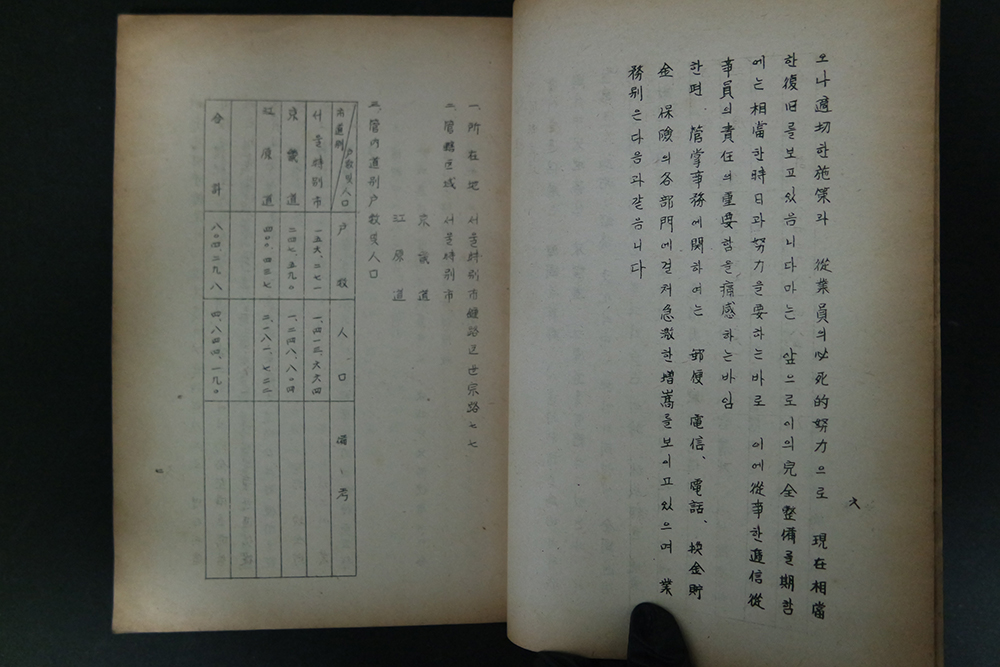 오나 適切한 施策과 從業員의 必死的 努力으로 現在 相當
한 復旧를 보고 있음니다마는 앞으로 이의 完全整備를 期함
에는 相當한 時日과 努力을 要하는 바로 이에 從事한 遞信從
事員의 責任의 重要함을 痛感하는 바임
한편、管掌事務에 關하여는 郵便 電信、電話、換金貯
金 保険의 各部門에 걸처 急激한 増嵩를 보이고 있으며 業
務別은 다음과 같음니다
六
一、所在地 서울特別市 鍾路区 世宗路 七七
二、管轄区域 서울特別市
京畿道
江原道
三、管内道別戸數및人口
市道別 戸數및人口 戸數 人口 備考
서울特別市 一五六、二七一 一、四一三、六六四
京畿道 二四七、五九〇 一、二四八、八〇四
江原道 四〇〇、四三七 二、一八一、七二二
合計 八〇四、二九八 四、八四四、一九〇